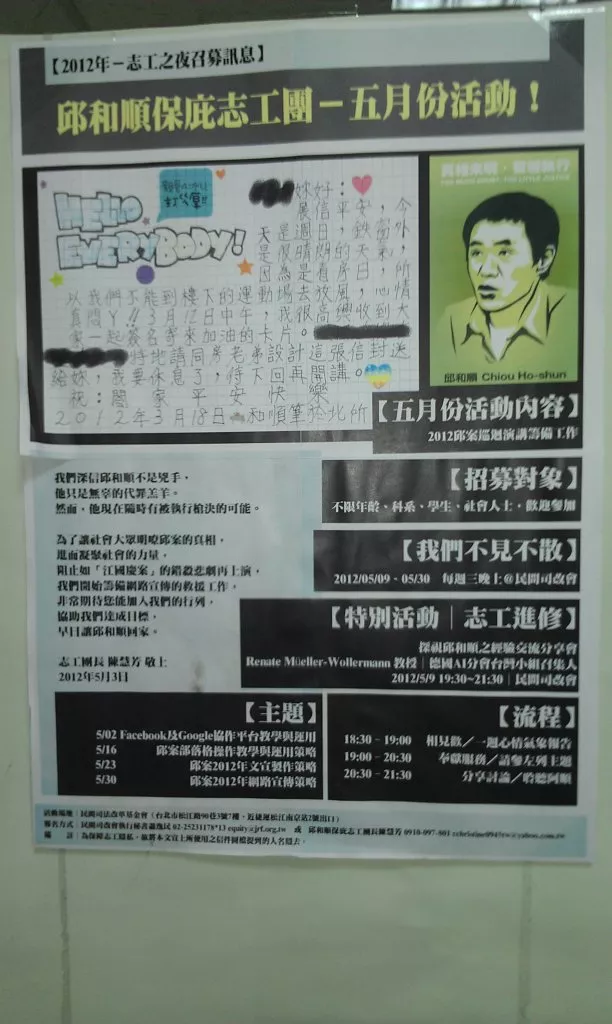 【2012年－志工之夜召募訊息】
邱和順保庇志工團－五月份活動！
HELLO
EVERYBODY!
打勞軍!!
妳好：
展信平安，今
天是週日，鐵窗外，
是很晴朗的天氣，
因為是看房日，所
以我們不能到樓下的運動場去放風，心情
真悶ㄚ!!3月12日中午，我很高興收到大
家一起簽名寄來加油的卡片。
特地請同房老弟設計這張信封送
給妳，我要休息了，待下回再開講。
祝：閤家平安快樂
2012年3月18日 和順筆於北所
真相未明，看誰執行
邱和順 Chiou Ho-shun
【五月份活動內容】
2012邱案巡迴演講籌備工作
【招募對象】
不限年齡、科系、學生、社會人士，歡迎參加
【我們不見不散】
2012/05/09、05/30 每週三晚上@民間司改會
我們深信邱和順不是兇手，
他只是無辜的代罪羔羊。
然而，他現在隨時有被執行槍決的可能。
為了讓社會大眾明瞭邱案的真相，
進而凝聚社會的力量，
阻止如「江國慶案」的錯殺悲劇再上演，
我們開始籌備網路宣傳的救援工作，
非常期待您能加入我們的行列，
協助我們達成目標，
早日讓邱和順回家。
志工團長 陳慧芳 敬上
2012年5月3日
【特別活動｜志工進修】
探視邱和順之經驗交流分享會
Renate Müeller-Wollermann 教授｜德國AI分會台灣小組召集人
2012/5/9 19:30~21:30｜民間司改會
【主題】
5/02 Facebook及Google協作平台教學與運用
5/16 邱案部落格操作教學與運用策略
5/23 邱案2012年文宣製作策略
5/30 邱案2012年網路宣傳策略
【流程】
18:30－19:00 相見歡／一週心情氣象報告
19:00－20:30 奉獻服務／請參左列主題
20:30－21:30 分享討論／聆聽阿順
活動場地：民間司法改革基金會（台北市松江路90巷3號7樓，近捷運松江南京站2號出口）
報名方式：民間司改會執行秘書蕭逸民 02-25231178*13 equity@jrf.org.tw 或 邱和順保庇志工團長陳慧芳 0910-097-801
備 註：為保障志工隱私，故將本文宣上所使用之信件圖檔提到的人名隱去。